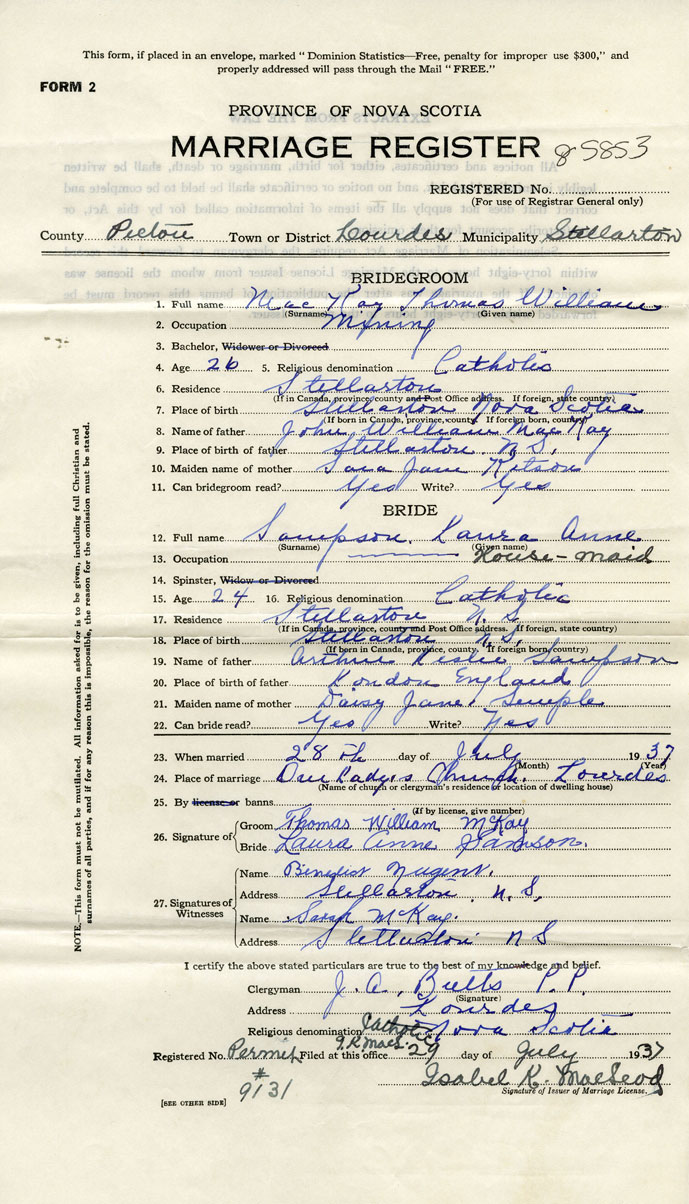 This form, if placed in an envelope, marked "Dominion Statistics—Free, penalty for improper use $300," and
properly addressed will pass through the Mail "FREE."
FORM 2
PROVINCE OF NOVA SCOTIA
MARRIAGE REGISTER 85853
REGISTERED No.
(For use of Registrar General only)
County Pictou Town or District Lourdes Municipality Stellarton
BRIDEGROOM
1. Full name MacKay Thomas William
(Surname) (Given name)
2. Occupation Mining
3. Bachelor, Widower or Divorced
4. Age 26 5. Religious denomination Catholic
6. Residence Stellarton
(If in Canada, province, county and Post Office address. If foreign, state country)
7. Place of birth Stellarton Nova Scotia
(If born in Canada, province, county. If foreign born, country)
8. Name of father John William MacKay
9. Place of birth of father Stellarton N.S.
10. Maiden name of mother Sara Jane Kitson
11. Can bridegroom read? Yes Write? Yes
BRIDE
12. Full name Sampson, Laura Anne
(Surname) (Given name)
13. Occupation House-maid
14. Spinster, Widow or Divorced
15. Age 24 16. Religious denomination Catholic
17. Residence Stellarton N.S
(If in Canada, province, county and Post Office address. If foreign, state country)
18. Place of birth Stellarton N.S.
(If born in Canada, province, county. If foreign born, country)
19. Name of father Arthur Leslie Sampson
20. Place of birth of father London England
21. Maiden name of mother Daisy Jane Semple
22. Can bride read? Yes Write? Yes
23. When married 28th day of July 1937
(Month) (Year)
24. Place of marriage Our Lady's Church. Lourdes
(Name of church or clergyman's residence or location of dwelling house)
25. By license or banns
(If by license, give number)
26. Signature of Groom Thomas William McKay
Bride Laura Anne Sampson.
27. Signatures of Witnesses
Name Benedict Nugent.
Address Stellarton N.S,
Name Sarah McKay.
Address Stellarton N S
I certify the above stated particulars are true to the best of my knowledge and belief.
Clergyman J. A. Butts P.P.
(Signature)
Address Lourdes
Religious denomination Catholic Nova Scotia
Registered No. Permit Filed at this office 29 day of July 1937
# 9131
Isabel K. MacLeod
Signature of Issuer of Marriage License.
[SEE OTHER SIDE]
NOTE.—This form must not be mutilated. All information asked for is to be given, including full Christian and
surnames of all parties, and if for any reason this is impossible, the reason for the omission must be stated.